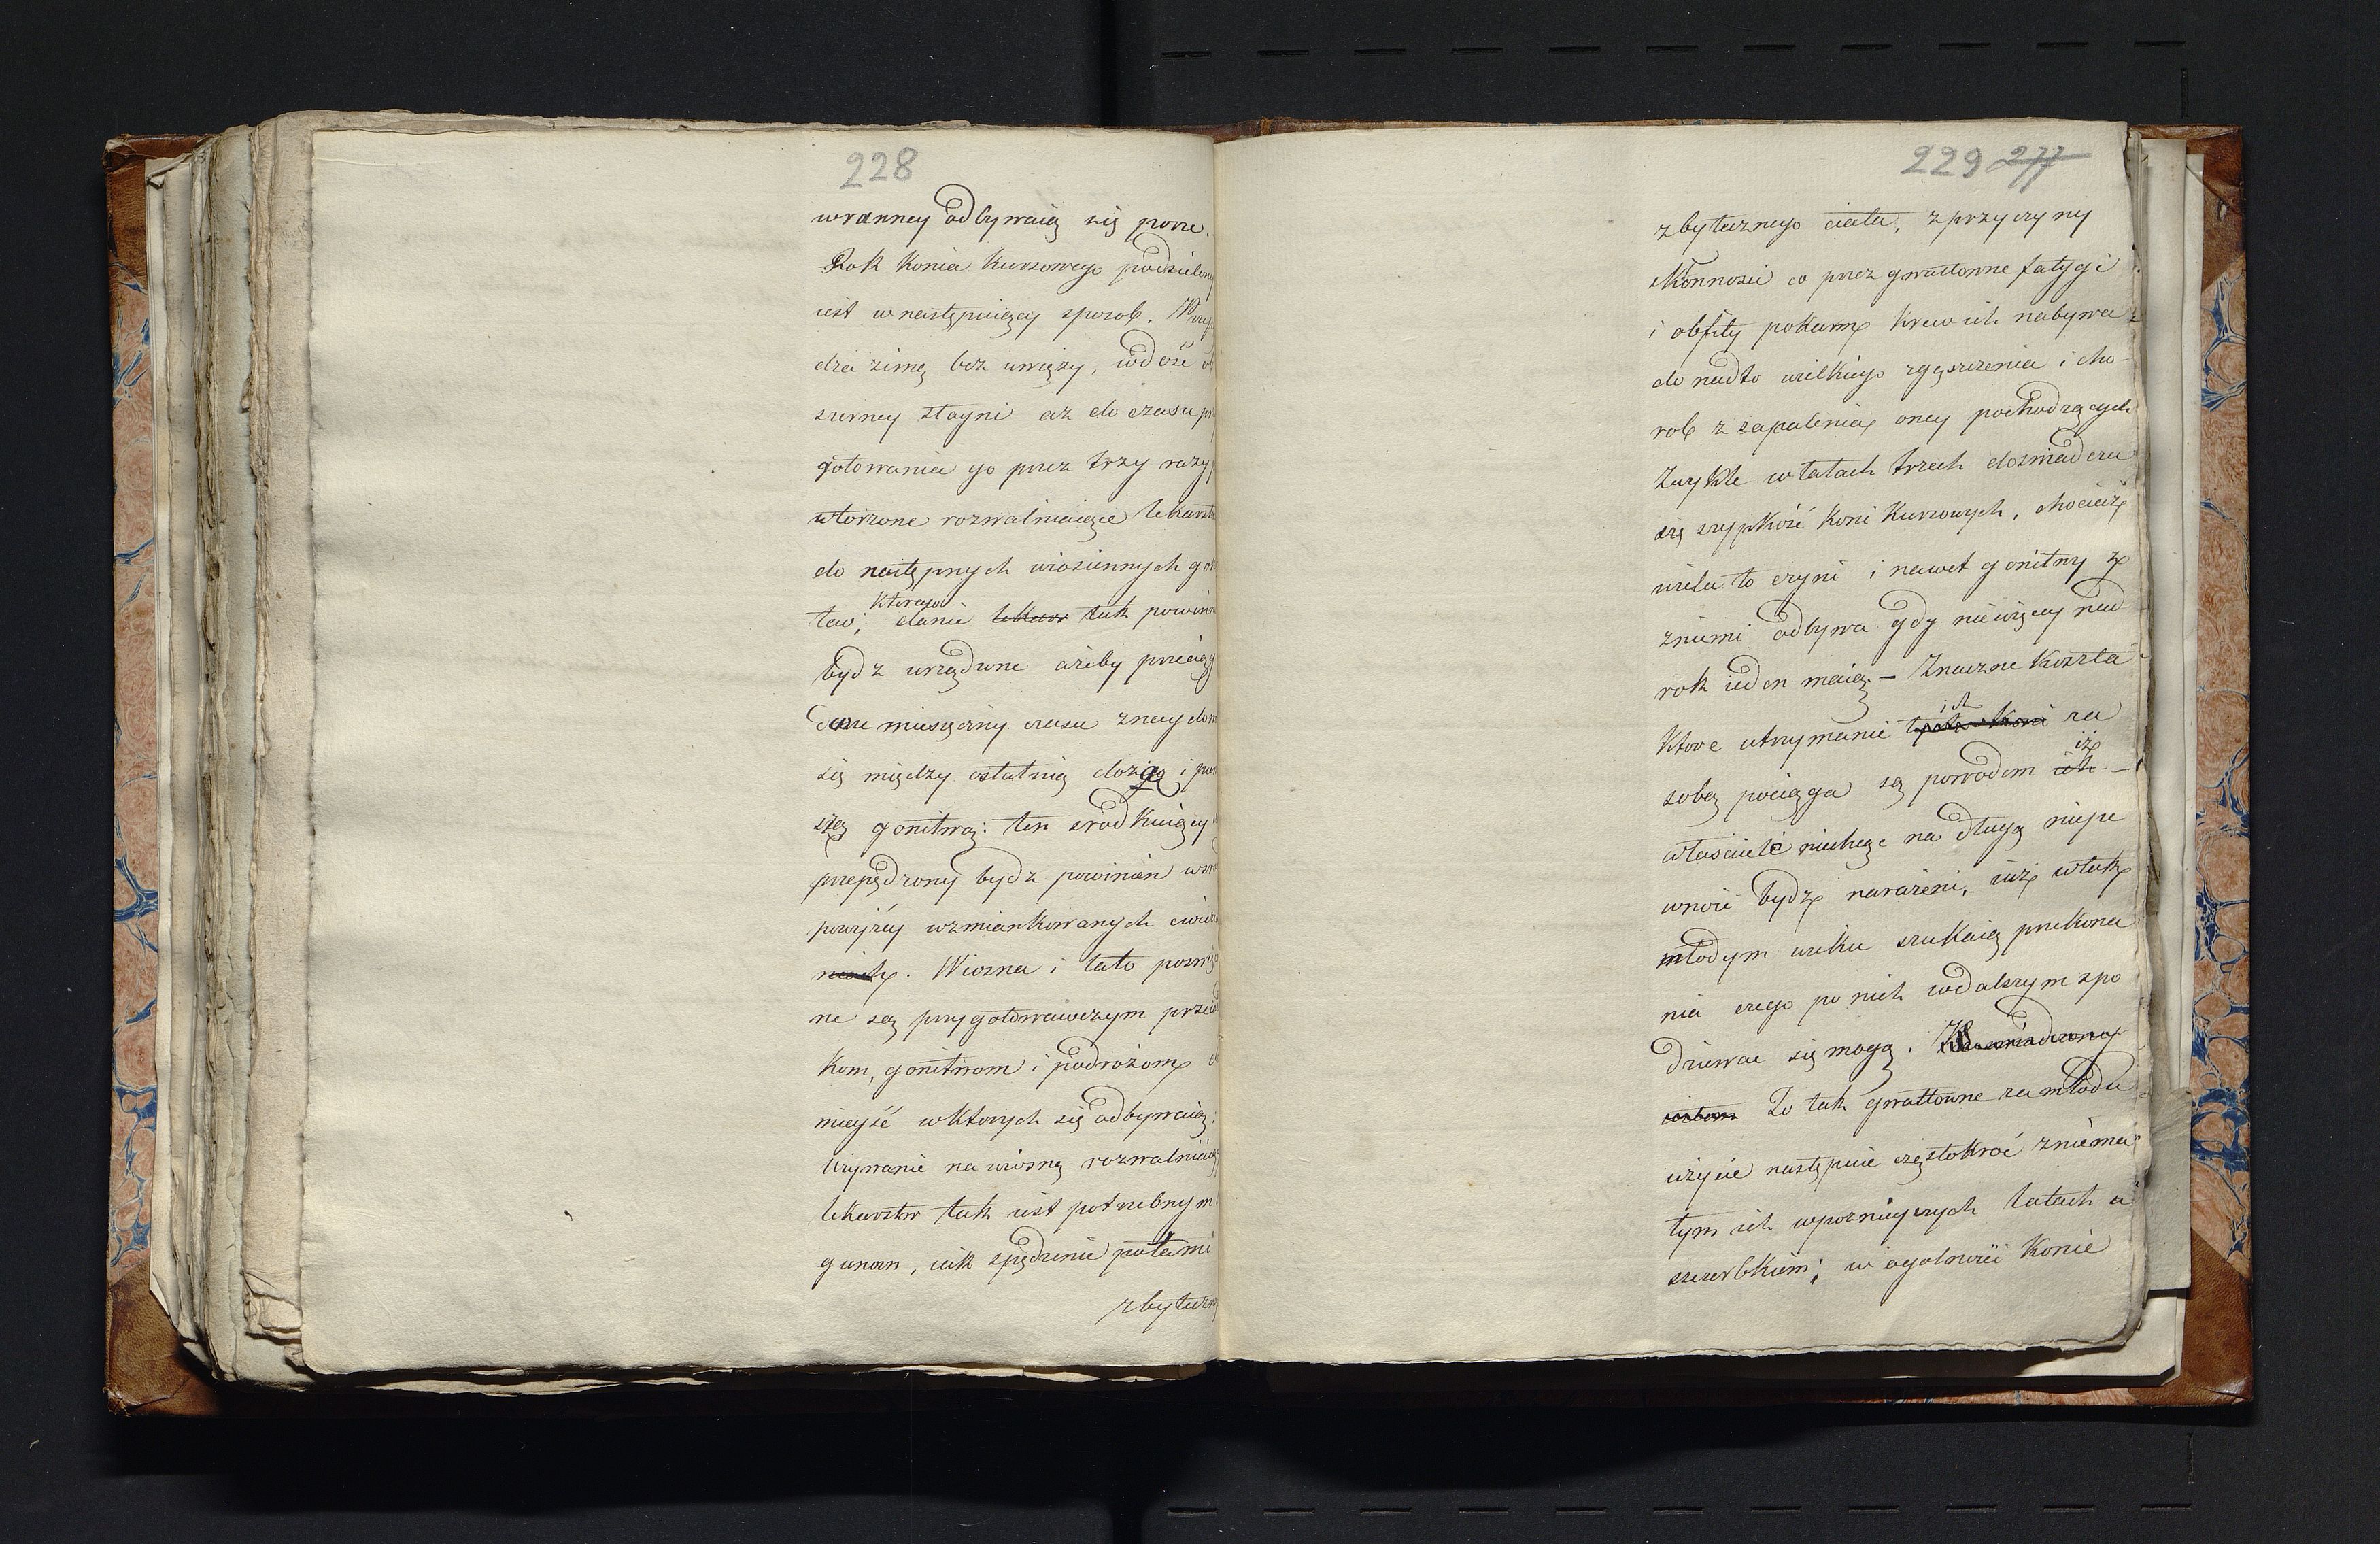 228
wranney odbywaią się porze.
Rok Konia Kursowego podzielony
iest w następuiący sposob. Przep
dza zimę bez uwięzy, w dość ob
szerney stayni aż do czasu prz
gotowania go przez trzy razy p
wtorzone rozwalniaiące lekarstw
do następnych wiosiennych goń
tew; którego danie lekars tak powinn
bydz urządzone ażeby przeciąg
dwu miesięczny czasu znaydow
się między ostatnią dozą i pier
szą gonitwą: ten srodkuiący
przepędzony bydz powinien w
powyżéy wzmiankowanych ćwicze
niach. Wiosna i lato poswięco
ne są przygotowawczym przecho
kom, gonitwom i podrożom do
mieysć w ktorych się odbywaią:
Używanie na wiosnę rozwalniaiąc
lekarstw tak iest potrzebnym
gunom, iak spędzenie potami
zbyteczn
229 277
zbytecznego ciała, z przyczyny
skłonności co przez gwałtowne fatygi
i obfity pokarm krew ich nabywa
do nadto wielkiego zgęszczenia i cho-
rob z zapalenia oney pochodzących
Zwykle w latach trzech doswiadcza
szą szypkość Koni Kursowych, chociaż
wielu to czyni i nawet gonitwy
z niemi odbywa gdy niewięcey nad
rok ieden maią. — Znaczne Koszta
Ktore utrzymanie ich za
sobą pociąga są powodem iż ich —
własciciele niechcąc na długą niepe
wność bydz narażeni, iuż w tak
młodym wieku szukaią przekona
nia czego po nich w dalszym spo
dziewać się mogą.
Zo tak gwałtowne za młodu
użycie następnie częstokroć z niema
łym ich w poznieyszych latach u
szczerbkiem; w ogolności Konie